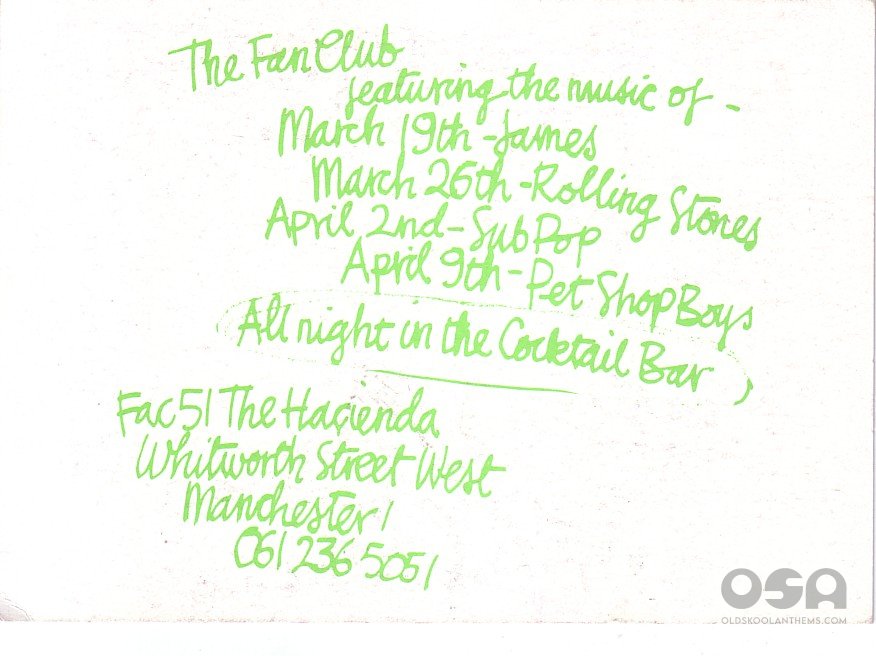 The Fan Club
featuring the music of -
March 19th - James
March 26th - Rolling Stones
April 2nd - Sub Pop
April 9th - Pet Shop Boys
All night in the Cocktail Bar
Fac 51 The Haçienda
Whitworth Street West
Manchester 1
061 236 5051
OSA
OLDSKOOLANTHEMS.COM